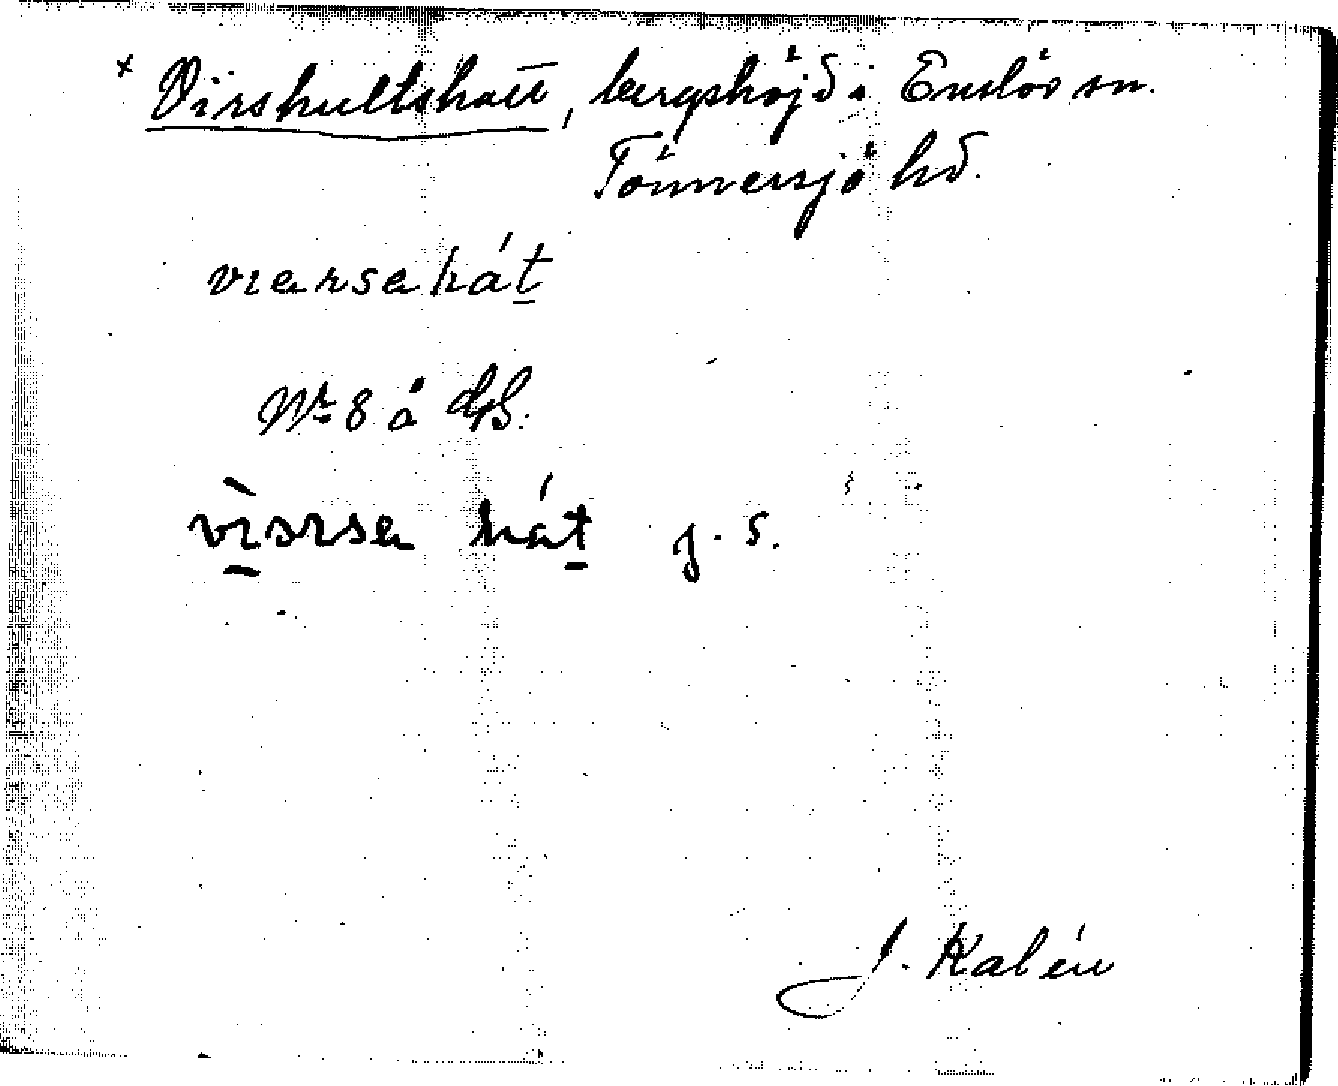 × Virshultshatt, bergshöjd i Enslöv sn.
Tönnersjö hd.
vıarsa hát
Nr 8 å
vìsrsa hát g. s.
J. Kalén